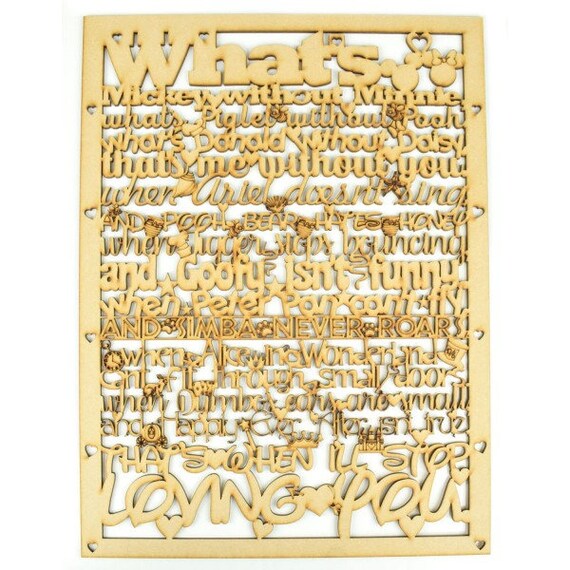 What's
Mickey without Minnie
what's Piglet without Pooh
what's Donald without Daisy
that's me without you
when Ariel doesn't sing
AND POOH BEAR HATES HONEY
when Tigger stops bouncing
and Goofy isn't funny
when Peter Pan can't fly
AND SIMBA NEVER ROARS
when Alice in Wonderland
Can't fit through small doors
when Dumbo's ears are small
and Happily Ever After isn't true
THAT'S WHEN I'LL STOP
LOVING YOU